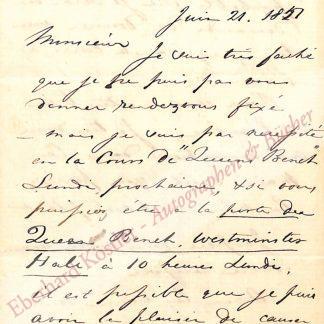 Juin 21. 1851
Monsieur
Je suis très faché
que je ne puis pas vous
donner rendezvous fixé
– mais je suis par necessité
en la Cours de "Queens Bench"
Lundi prochaine & si vous
puissiez être à la porte des
Queens Bench, Westminster
Hall à 10 heures Lundi,
il est possible que je puis
avoir la plaisir de causer
Eberhard Köstler - Autographen & Bücher